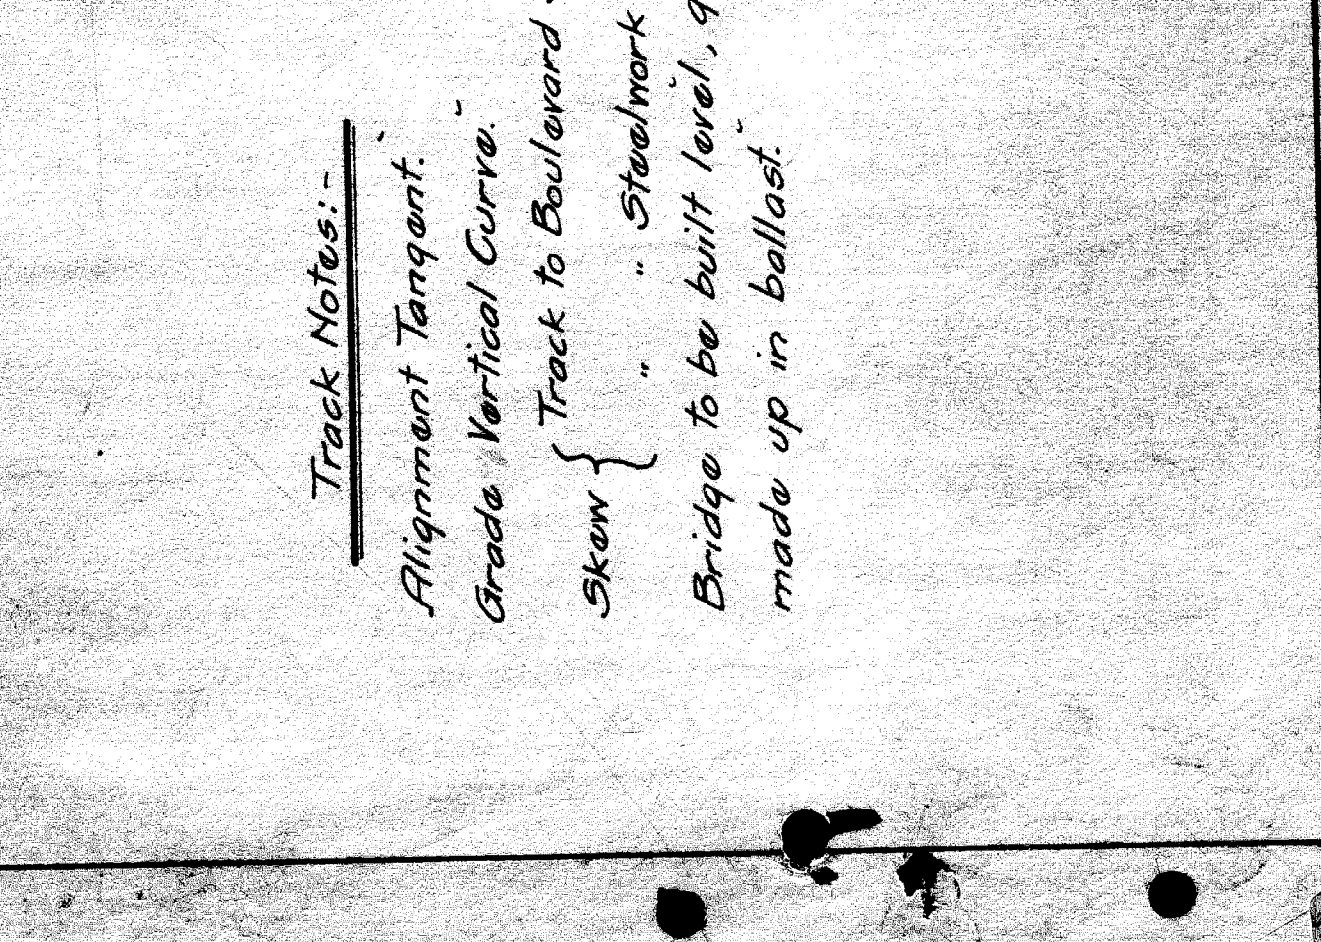 Track Notes:-
Alignment Tangent.
Grade Vertical Curve.
Skew { Track to Boulevard
" " Steelwork
Bridge to be built level, g
made up in ballast.